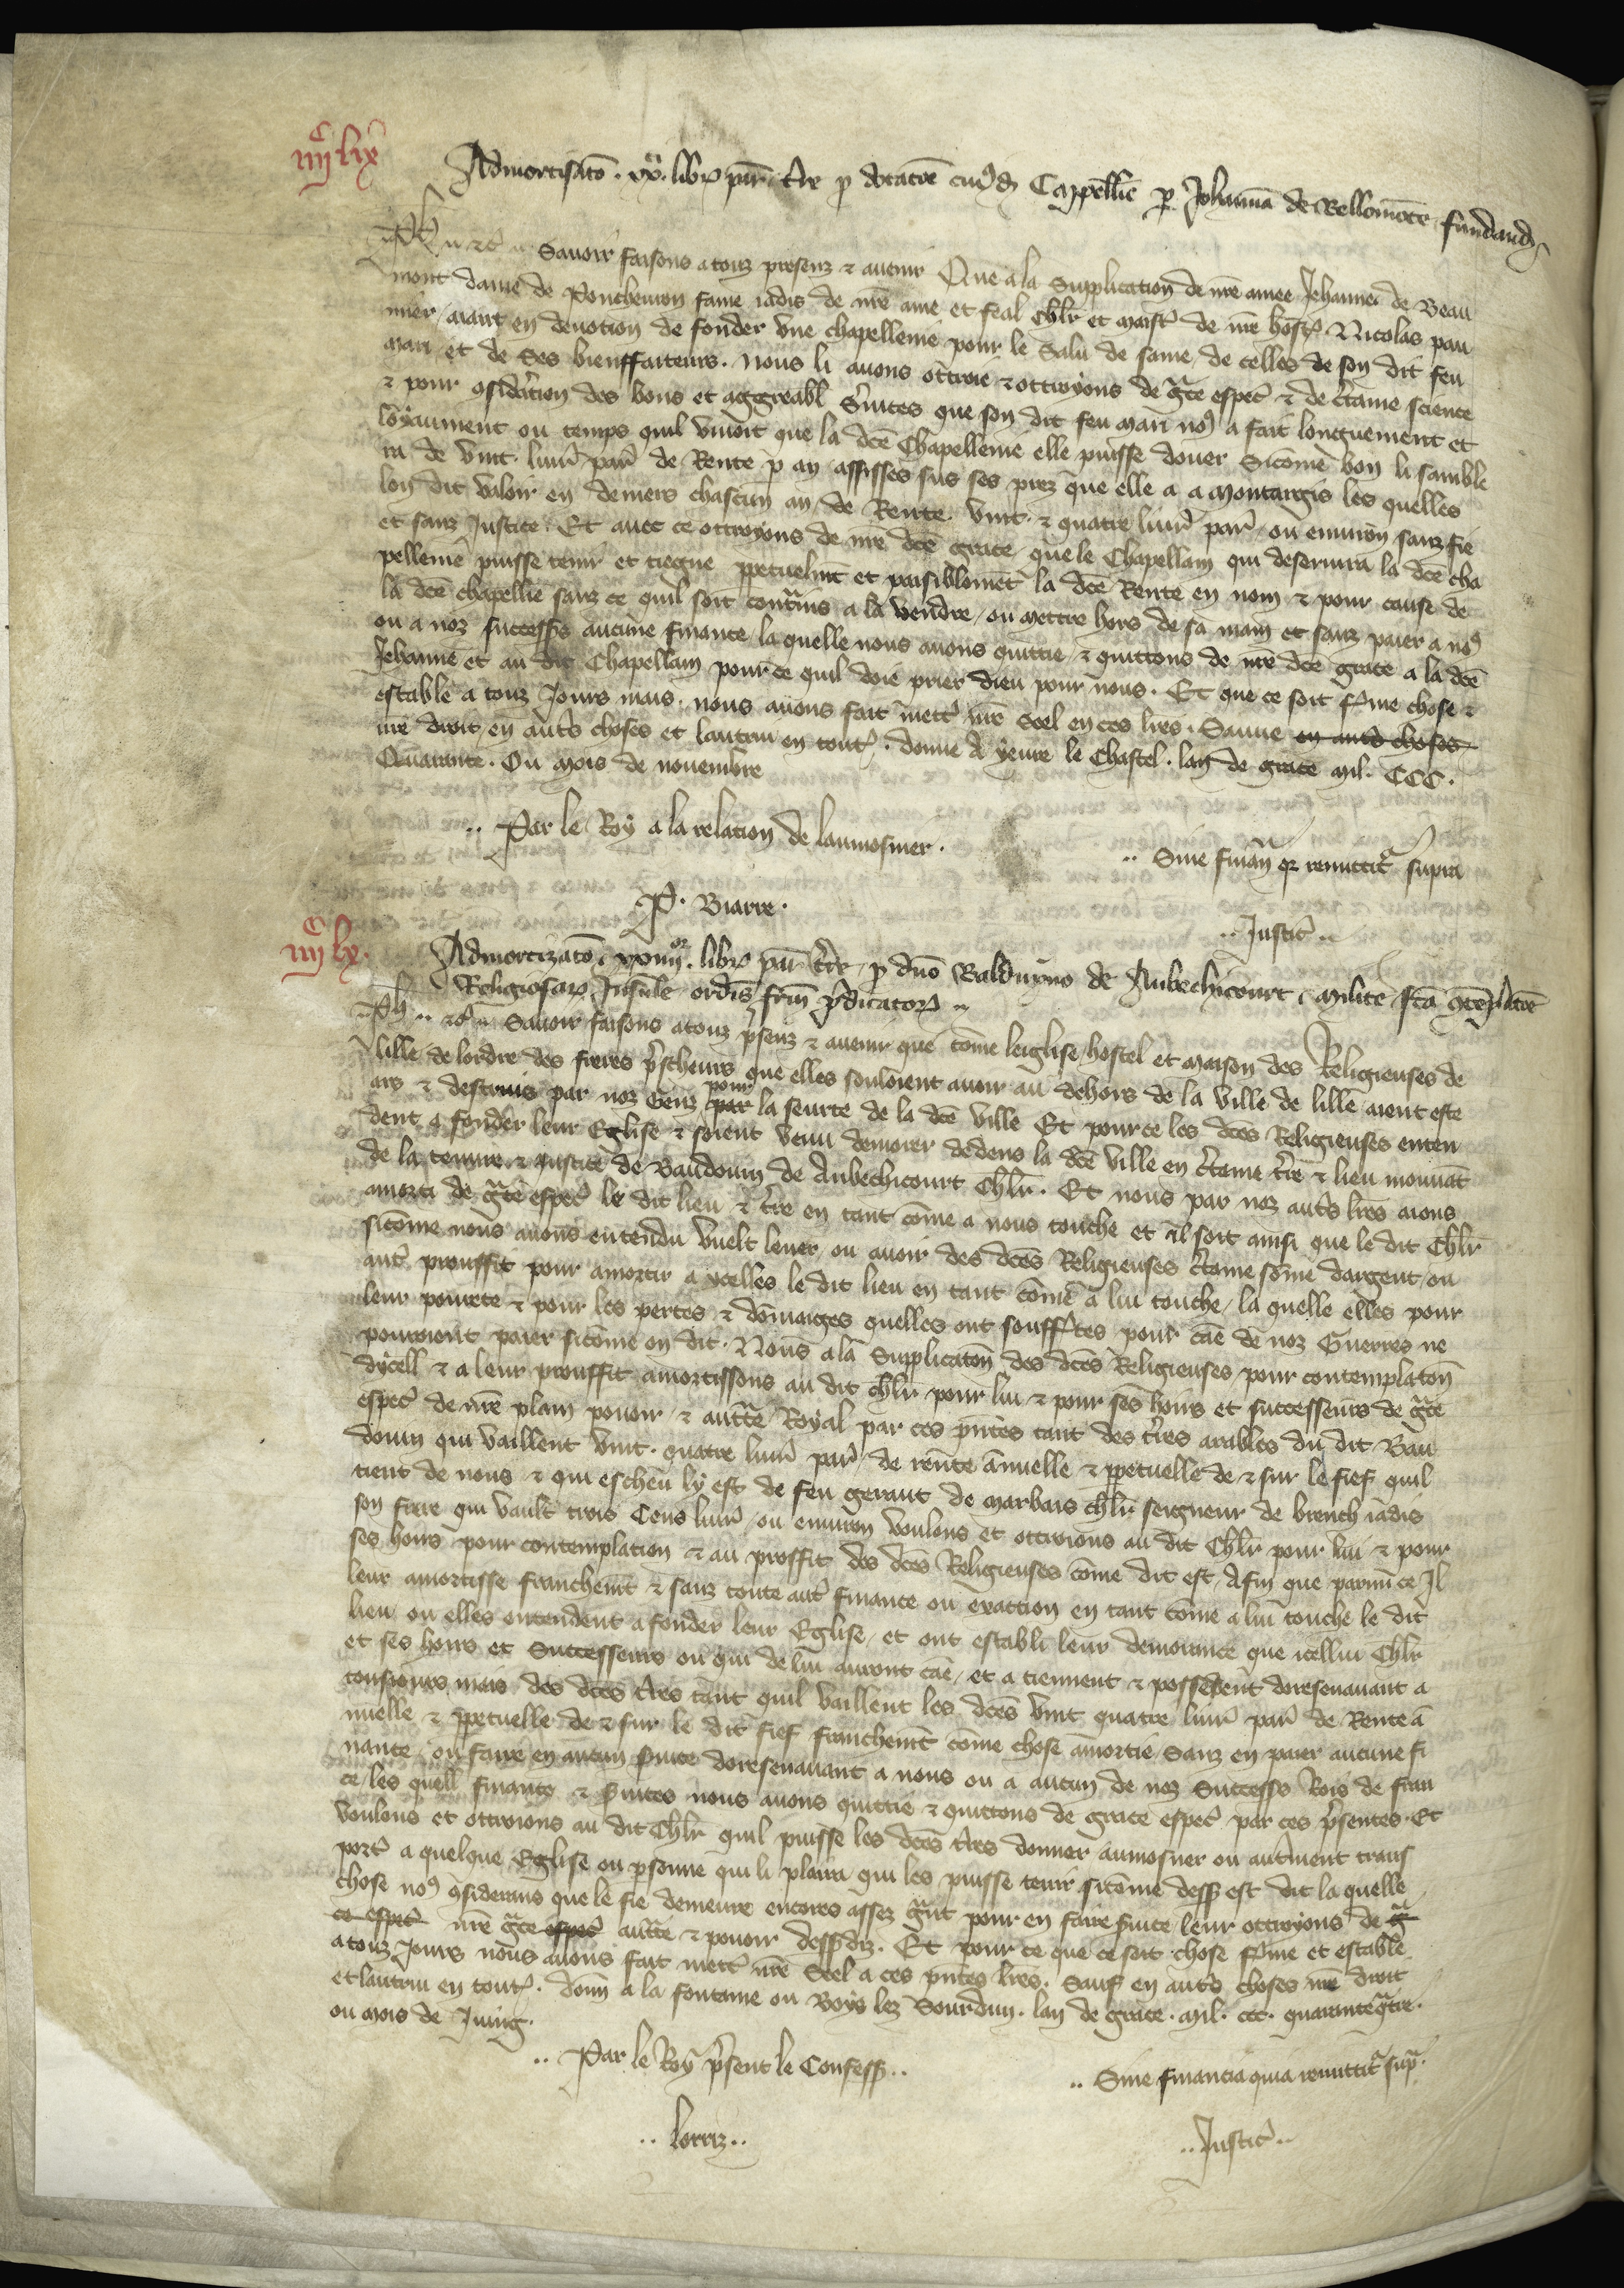 iiijᶜ lix
Admortisatō . xxti. libr. par. t̃re p dotacōe cuiꝰdā Cappellīe p Johannā de Bellomōte fundand.
Ph. &c. Savoir faisons a touz presenz & avenir Que a la Supplication de nr̃e amee Jehanne de Beau
mont dame de Ponchevron fame jadis de nr̃e ame et feal chlr̃ et maistr̃ de nr̃e host̃. Nicolas pan
nier, aiant en devotion de fonder vne chapellenie pour le Salu de same, de celles de son dit feu
mari et de Ses bienffaiteurs. Nous li avons ottroie & ottroyons de gr̃ce espec̃ & de c̃taine science
& pour 9sidération des bons et aggreabl s̃uices que son dit feu mari noꝰ a fait longuement et
loyaument ou temps quil vivoit que la dc̃e Chapellenie elle puisse douer Sicōme bon li samble
ra de vint liur̃ par̃ de Rente p an assisses sus ses prez que elle a a Montargis les quelles
lon dit valoir en deniers chascun an, de Rente. vint & quatre liur̃ par̃ ou environ sanz fie
et sanz Justice. Et avec ce ottroyons de nr̃e dc̃e grace que le Chapellain qui deservira la dc̃e cha
pellenie puisse tenir et tiegne ppetuelmt̃ et paisiblemēt la dc̃e Rente en nom & pour cause de
la dc̃e chapellīe sanz ce quil soit contrains a la vendre, ou mettre hors de sa main et sanz paier a noꝰ
ou a noz successrs̃ aucune finance la quelle nous avons quittie, & quittons de nr̃e dc̃e grace a la dc̃e
Jehanne et au dit Chapellain pour ce quil doie prier dieu pour nous. Et que ce soit f̃me chose &
estable a touz Jours mais. nous avons fait mett̃ nr̃e Seel en ces lr̃es. Sauue en aut̃s choses
nr̃e droit en aut̃s choses et lautrui en tout̃. donne A yeure le Chastel. lan de grace Mil. CCC.
Quarante. Ou mois de novembre
.. Par le Roy a la relation de laumosnier.
.. Sine finañ qr remittitr̃ supra
P. Biarre.
.. Justic̃ ..
iiijᶜ lx.
Admortizatō. xxiiijor. libr. par. t̃re p dño Balduyno de Aubechicourt, milite fc̃a 9tēplacōe
Religiosar. Insule ordis̃ fr̃m p̃dicator. ..
Ph .. &c̃ .. Savoir faisons a touz p̃senz & avenir que cōme leiglise hostel et maison des Religieuses de
lille de lordre des freres p̃scheurs que elles souloient avoir au dehors de la ville de lille aient este
ars & destruis par noz Genz par pour la seurte de la dc̃e ville Et pour ce les dc̃es Religieuses enten
dent a fonder leur Eglise & soient venu demorer dedens la dc̃e ville en c̃taine t̃re & lieu mouvāt
de la tenure & justice de Baudouin de Aubechicourt Chlr̃. Et nous par noz aut̃s lr̃es aions
amorti de gr̃ce espec̃ le dit lieu & t̃re en tant cōme a nous touche et il soit ainsi que le dit Chlr̃
sicōme nous avons entendu vuelt lever ou avoir des dc̃es Religieuses c̃taine sōme dargent, ou
aut̃ prouffit pour amortir a ycelles le dit lieu en tant cōme a lui touche, la quelle elles pour
leur povrete & pour les pertes & dōmaiges quelles ont souff̃tes pour cãe de noz Guerres ne
pourroient paier sicōme on dit. Nous a la Supplicatōn des dc̃es Religieuses, pour contemplatōn
dycell & a leur prouffit amortissons au dit chlr̃ pour lui & pour ses hoirs et successeurs de gr̃ce
espec̃ de nr̃e plain povoir & auct̃e Royal par ces p̃ntes tant des t̃res arables du dit Bau
douin qui vaillent vint quatre liur̃ par̃ de rente ānuelle & ppetuelle de & sur le fief quil
tient de nous & qui escheu ly est de feu gerart de Marbais chlr̃ seigneur de breuch iadis
son frere qui vault trois Cens liur̃, ou environ voulons et ottroions au dit Chlr̃ pour lui & pour
ses hoirs pour contemplation & au proffit des dc̃es Religieuses cōme dit est, Afin que parmi ce Il
leur amortisse franchemt̃ & sanz toute aut̃ finance ou exaction en tant cōme a lui touche le dit
lieu ou elles entendent a fonder leur Eglise, et ont establi leur demorance que icellui Chlr̃
et ses hoirs et Successeurs ou qui de lui auront cãe, et a tiennent & possedent doresenavant a
tousjours mais des dc̃es t̃res tant quil vaillent les dc̃es vint quatre liur̃ par̃ de Rente ā
nuelle & ppetuelle de & sur le dit fief franchemt̃ cōme chose amortie, Sanz en paier aucune fi
nance, ou faire en aucun s̃uice doresenavant a nous ou a aucun de noz Successrs̃ Rois de fran
ce, les quell finance & s̃uices nous avons quittie & quittons de grace espec̃ par ces p̃sentes. Et
voulons et ottroions au dit Chlr̃ quil puisse les dc̃es t̃res donner aumosner ou aut̃ment trans
port̃ a quelque Eglise ou p̃sonne qui li plaira qui les puisse tenir sicōme dessꝰ est dit la quelle
chose noꝰ 9siderans que le fie demeure encores assez gr̃nt pour en faire s̃uice leur ottroyons de gr̃
ce espec̃ nr̃e gr̃ce espec̃ auct̃e & povoir dessꝰdiz. Et pour ce que ce soit chose f̃me et estable
a touz Jours nous avons fait mett̃ nr̃e Seel a ces p̃ntes lr̃es. Sauf en aut̃s choses nr̃e droit
et lautrui en tout̃. donñ a la fontaine ou Boys lez Sourdun. lan de grace. Mil. ccc. quarante q̃tre.
ou mois de Juing.
.. Par le Roy p̃sent le Confess̃ ..
.. Sine financia quia remittitr̃ sup̃.
.. Lorriz ..
.. Justic̃ ..